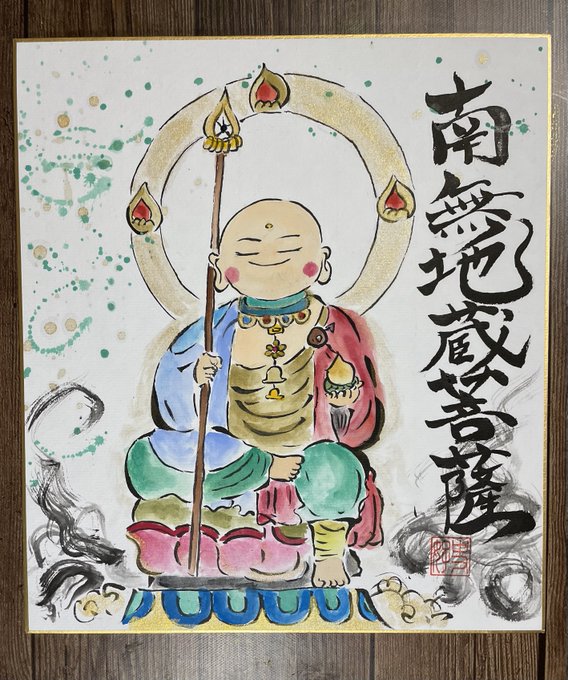 南無地蔵菩薩